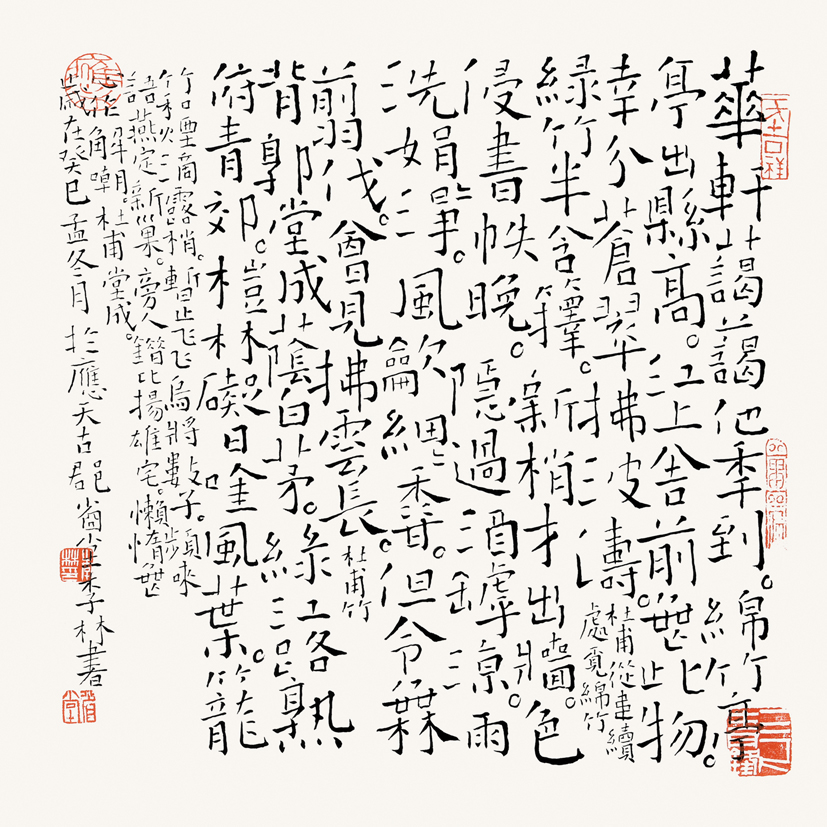 華軒藹藹他秊到。綿竹亭
亭出縣高。江上舍前無此物。
幸分蒼翠拂波濤。
杜甫從韋續
處覓綿竹
綠竹半含籜。新梢才出牆。色
侵書帙晚。隱過酒罇涼。雨
洗娟娟淨。風龡細細香。但令無
翦伐。會見拂雲長。杜甫竹
背郭堂成蔭白茅。緣江路熟
俯青郊。榿林礙日唫風葉。籠
竹和煙滴露梢。暫止飛烏將數子。頻來
語燕定新巢。旁人錯比揚雄宅。懶惰無
心作解嘲。杜甫堂成。
歲在癸巳孟冬月於應天古郡嗇堂李林書